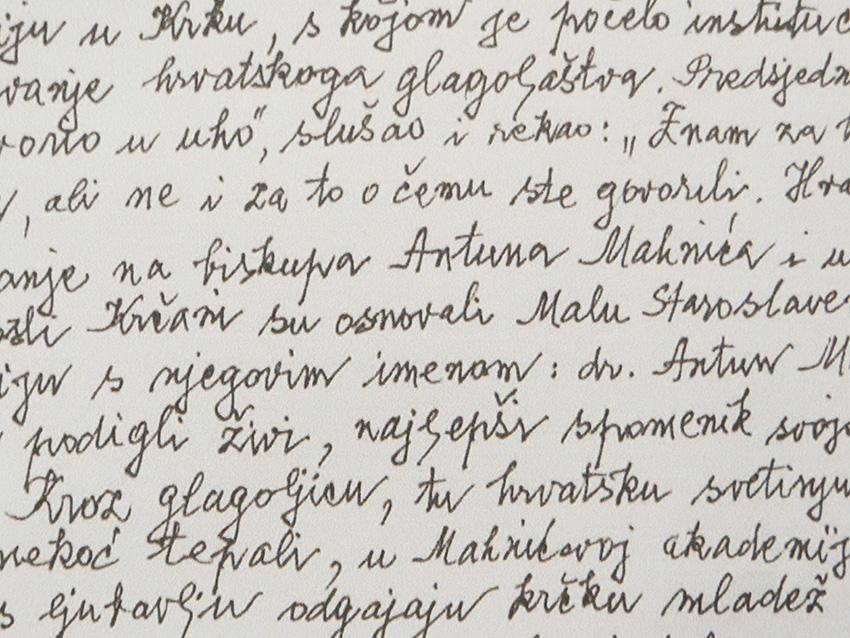 iju u Krku, s kojom je počelo instituc
vanje hrvatskoga glagoljaštva. Predsjedn
vorio u uho", slušao i rekao: „Znam za
, ali ne i za to o čemu ste govorili. Hrv
anje na biskupa Antuna Mahnića i u
ošli Krčani su osnovali Malu Staroslave
iju s njegovim imenom: dr. Antun M
podigli živi, najljepši spomenik svojo
Kroz glagoljicu, tu hrvatsku svetinju
nekoć tepali, u Mahnićevoj akademij
s ljubavlju odgajaju krčku mladež